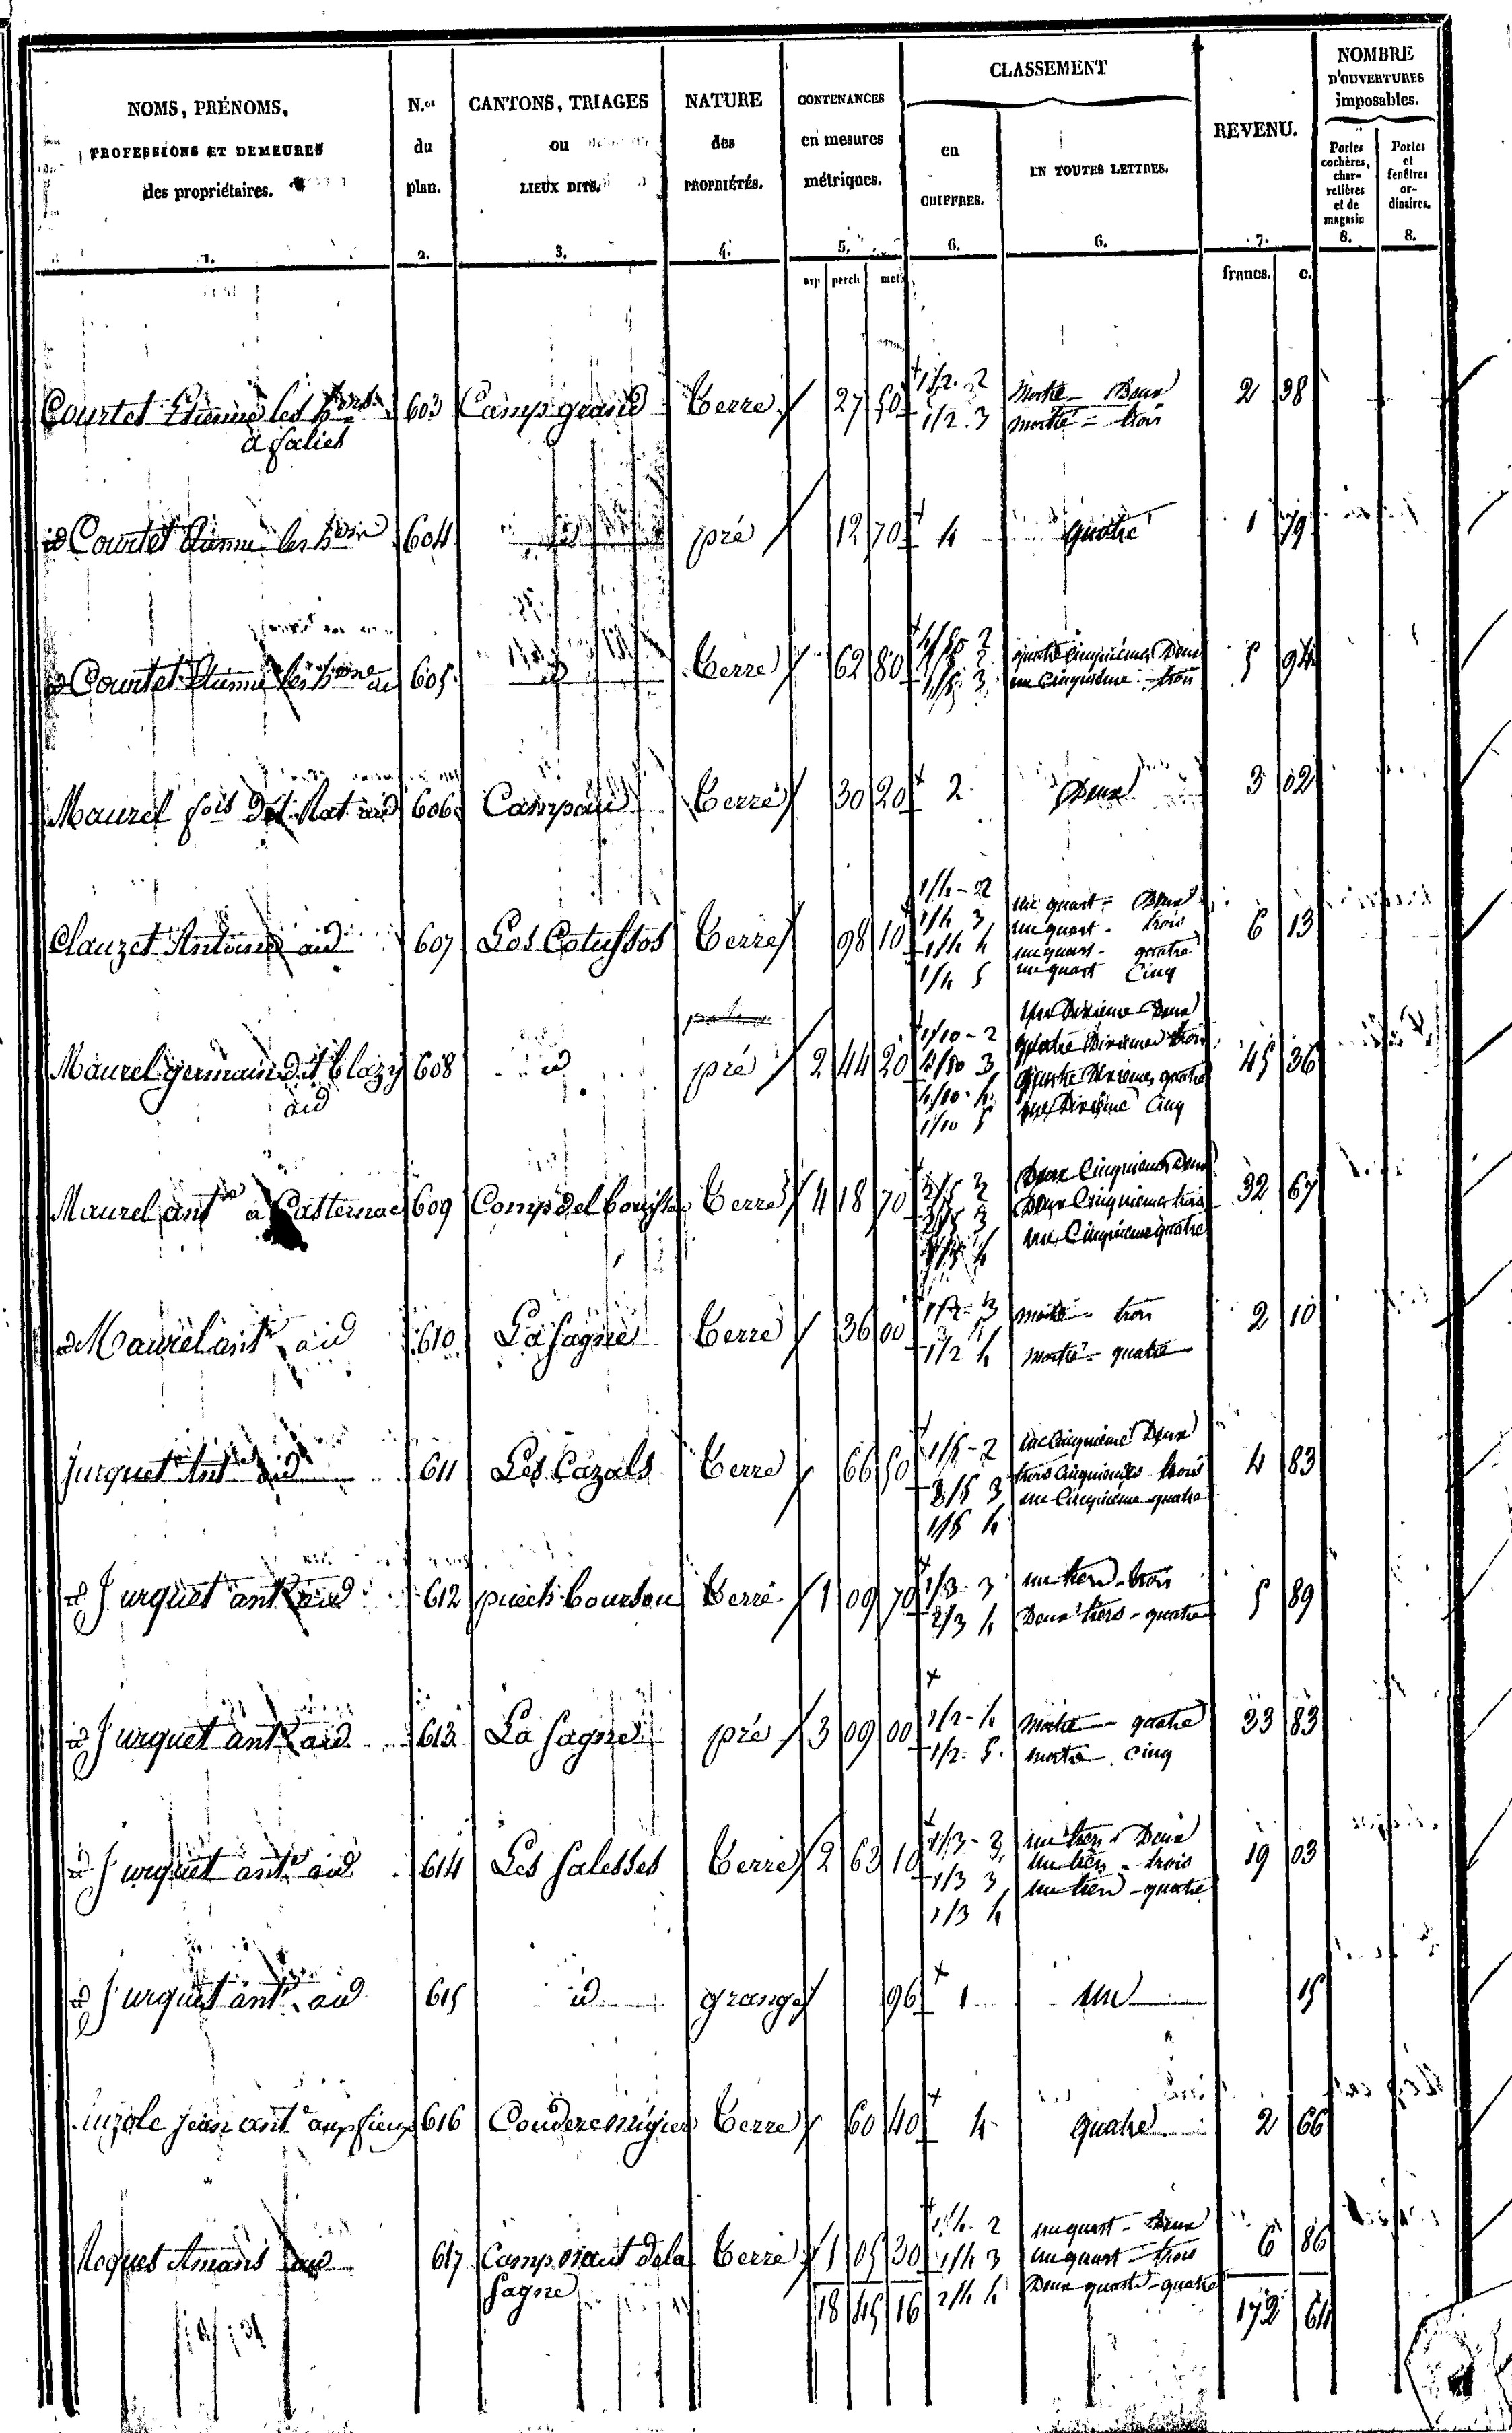 NOMS, PRÉNOMS,
PROFESSIONS ET DEMEURES
des propriétaires.
1.
N.os
du
plan.
2.
CANTONS, TRIAGES
ou
LIEUX DITS.
3.
NATURE
des
PROPRIÉTÉS.
4.
CONTENANCES
en mesures
métriques.
5.
arp perch met.
CLASSEMENT
en
CHIFFRES.
6.
EN TOUTES LETTRES.
6.
REVENU.
7.
francs. c.
NOMBRE
D'OUVERTURES
imposables.
Portes
cochères,
char-
retières
et de
magasin
8.
Portes
et
fenêtres
or-
dinaires.
8.
Courtet Etienne les 603 Camp grand Terre 27 50 1/2. 2 Moitié - Deux 2 38
à Salies 1/2. 3 moitié = trois
id Courtet Etienne les 604 id pré 12 70 4 quatre 1 79
id Courtet Etienne les 605 id Terre 62 80 4/5 2 quatre cinquièmes Deux 5 94
1/5 3 un cinquième trois
Maurel fois 606 Terre 30 20 2 Deux 3 02
Clauzet Antoine aud 607 Los Cotussos Terre 98 10 1/4 - 2 un quart = Deux 6 13
1/4 3 un quart - trois
1/4 4 un quart - quatre
1/4 5 un quart Cinq
Maurel germain dit Blazy 608 id pré 2 44 20 1/10 - 2 Un Dixième Deux 45 36
aud 4/10 3 quatre Dixièmes trois
4/10 - 4 quatre Dixièmes quatre
1/10 5 un Dixième Cinq
Maurel ant à Casternac 609 Terre 4 18 70 2/5 2 Deux Cinquièmes Deux 32 67
2/5 3 Deux Cinquièmes trois
1/5 4 un Cinquième quatre
id Maurel ant aud 610 La Sagne Terre 36 00 1/2 - 3 moitié - trois 2 10
1/2 4 moitié - quatre
Jurquet Ant aud 611 Les Cazals Terre 66 50 1/5 - 2 un cinquième Deux 4 83
3/5 3 trois cinquièmes trois
1/5 4 un Cinquième quatre
id Jurquet ant aud 612 puech Terre 1 09 70 1/3 - 3 un tiers - trois 5 89
2/3 4 Deux tiers - quatre
id Jurquet ant aud 613 La Sagne pré 3 09 00 1/2 - 4 Moitié - quatre 33 83
1/2 - 5 moitié cinq
id Jurquet ant aud 614 Les Salesses Terre 2 63 10 1/3 - 2 un tiers - Deux 19 03
1/3 3 un tiers - trois
1/3 4 un tiers - quatre
id Jurquet ant aud 615 id grange 96 1 un 15
jean ant 616 Couderc Terre 60 40 4 quatre 2 66
Roques Amans aud 617 Camp naut de la Terre 1 05 30 1/4 2 un quart - Deux 6 86
Sagne 1/4 3 un quart - trois
2/4 4 Deux quarts - quatre
18 45 16 172 64